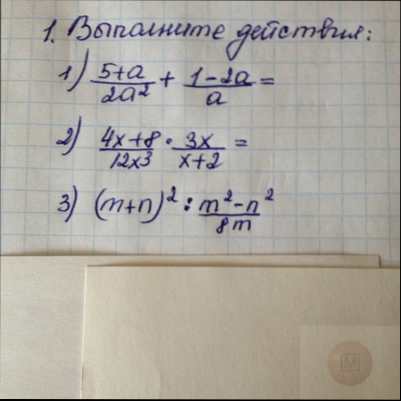 1. Выполните действия:
1) \frac{5+a}{2a^2} + \frac{1-2a}{a} =
2) \frac{4x+8}{12x^3} \cdot \frac{3x}{x+2} =
3) (m+n)^2 : \frac{m^2-n^2}{8m}
M